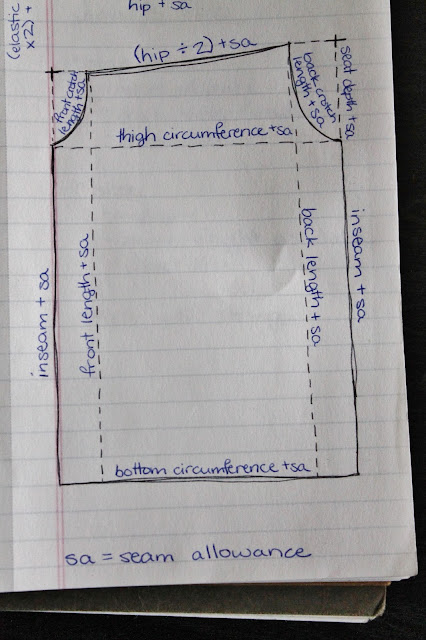 (elastic
x2) +
hip + sa
(hip ÷ 2) + sa
front crotch
length + sa
back crotch
length + sa
seat depth + sa
thigh circumference + sa
inseam + sa
front length + sa
back length + sa
inseam + sa
bottom circumference + sa
sa = seam allowance